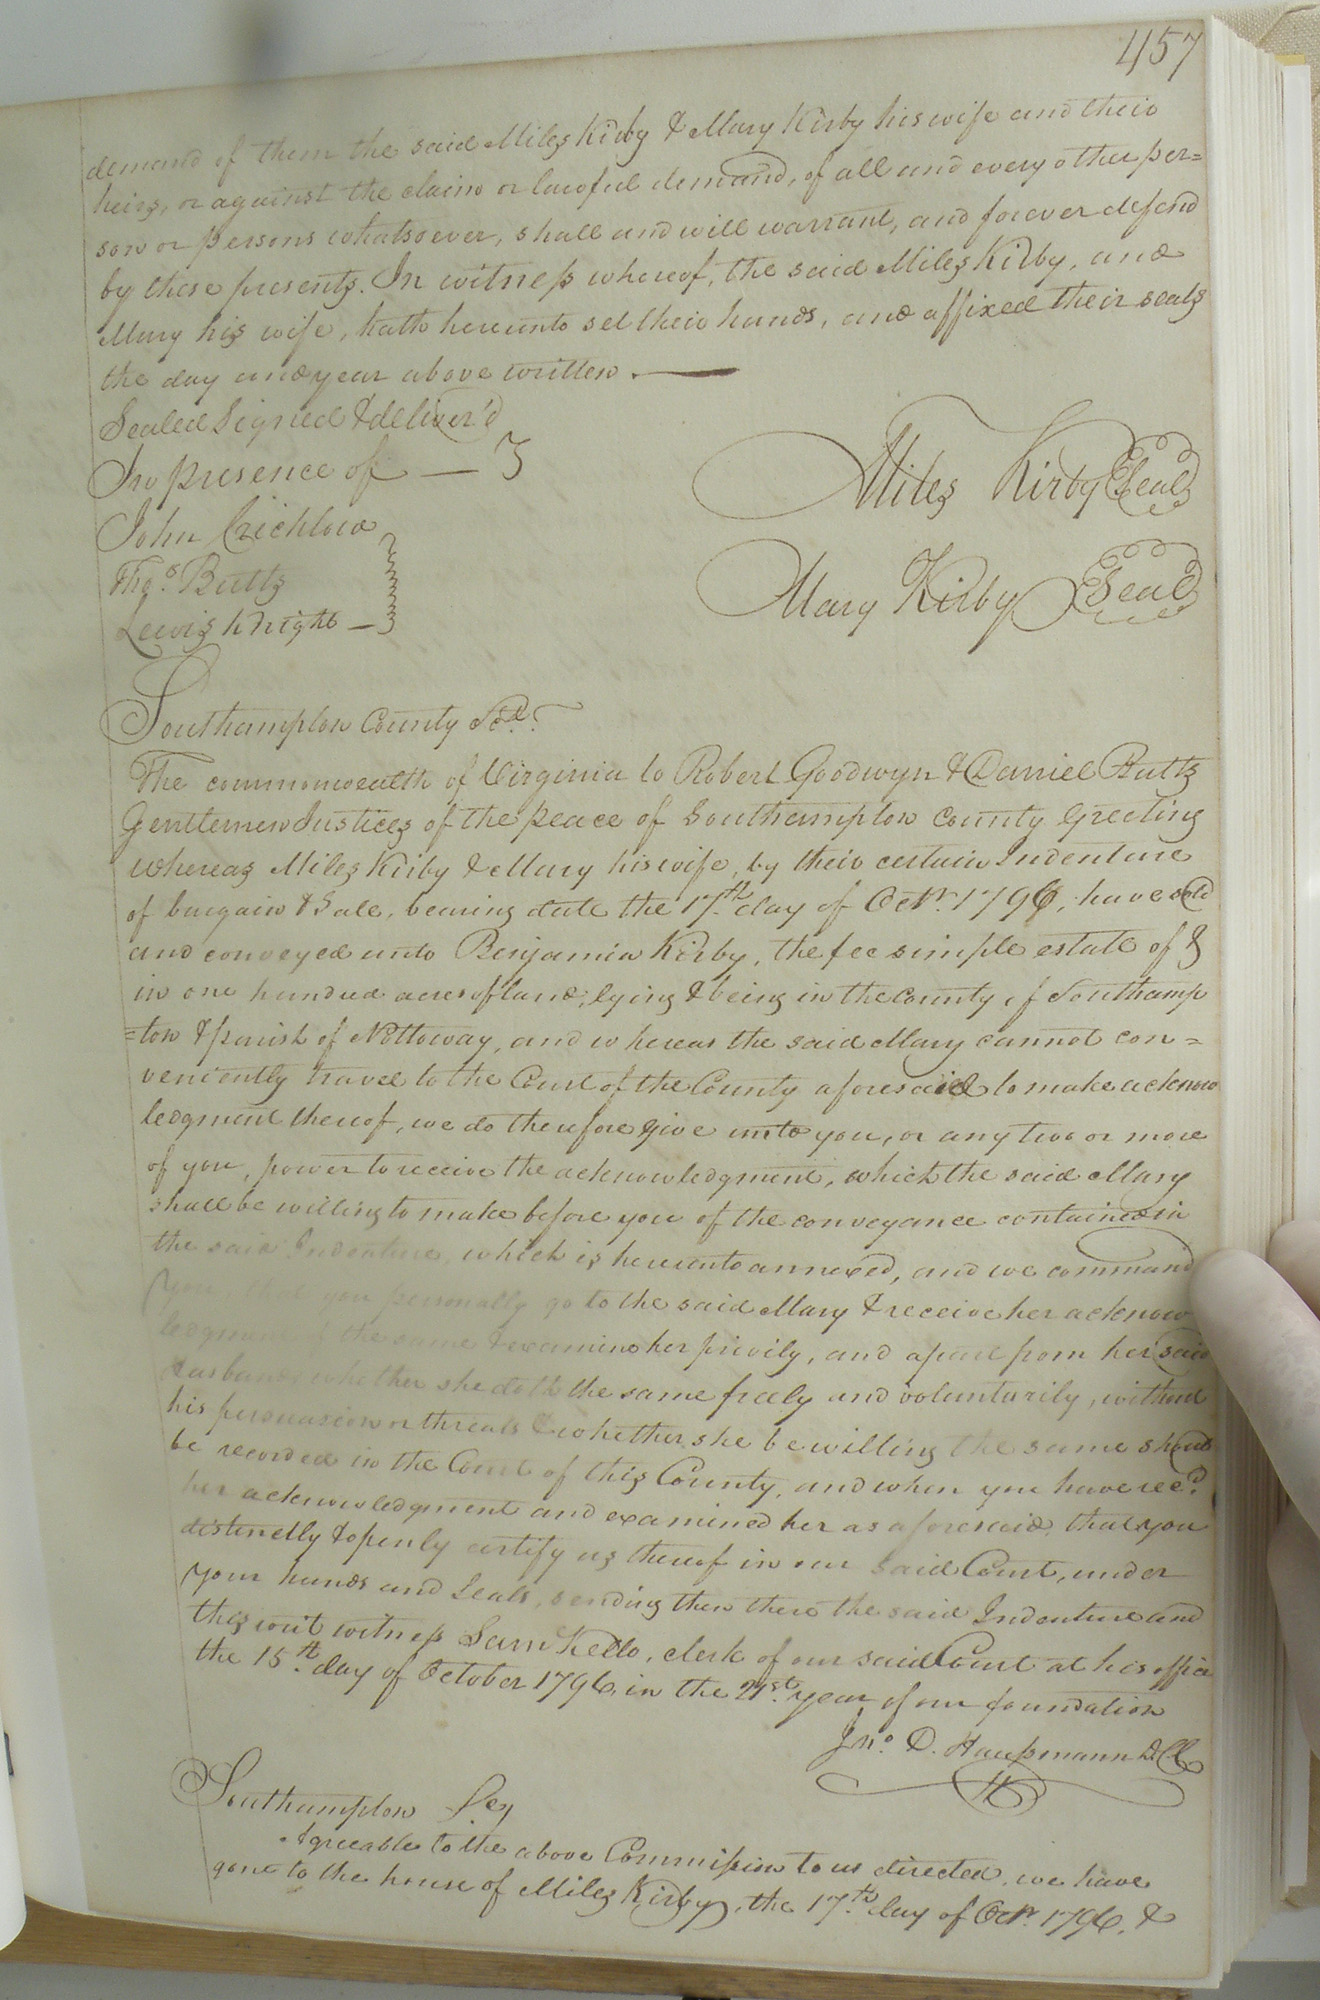 457
demand of them the said Miles Kirby & Mary Kirby his wife and their
heirs, or against the claim or lawful demand, of all and every other per=
son or persons whatsoever, shall and will warrant, and forever defend
by these presents. In witness whereof, the said Miles Kirby, and
Mary his wife, hath hereunto set their hands, and affixed their seals
the day and year above written.
Sealed Signed & deliver'd
In presence of
John Crichlow
Thos. Butts
Lewis Knight
Miles Kirby Seal
Mary Kirby Seal
Southampton County
The commonwealth of Virginia to Robert Goodwyn & Daniel Butts
Gentlemen Justices of the peace of Southampton County Greeting
whereas Miles Kirby & Mary his wife, by their certain Indenture
of bargain & Sale, bearing date the 17th day of Octr. 1796, have sold
and conveyed unto Benjamin Kirby, the fee simple estate of &
in one hundred acres of land, lying & being in the County of Southamp
=ton & parish of Nottoway, and whereas the said Mary cannot con=
veniently travel to the Court of the County aforesaid to make acknow
ledgment thereof, we do therefore give unto you, or any two or more
of you, power to receive the acknowledgment, which the said Mary
shall be willing to make before you of the conveyance contained in
the said Indenture, which is hereunto annexed, and we command
you that you personally go to the said Mary & receive her acknow
ledgment of the same & examine her privily, and apart from her said
Husband whether she doth the same freely and voluntarily, without
his persuasion or threats & whether she be willing the same should
be recorded in the Court of this County, and when you have recd.
her acknowledgment and examined her as aforesaid, that you
distinctly & openly certify us thereof in our said Court, under
your hands and Seals, sending then there the said Indenture and
this writ witness Sam Kello, clerk of our said Court at his office
the 15th. day of October 1796, in the 21st. year of our foundation
Jno. D. Haussmann D.Cl
Southampton
Agreeable to the above Commission to us directed, we have
gone to the house of Miles Kirby, the 17th. day of Octr. 1796, &